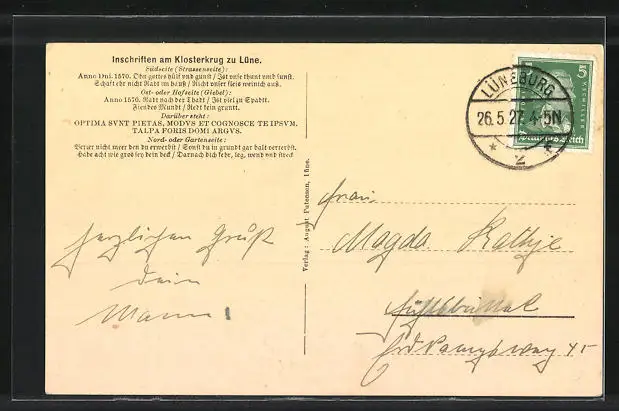 Inschriften am Klosterkrug zu Lüne.
Südseite (Strassenseite):
Anno Dni. 1570. Ohn gottes hülf und gunst / Ist unse thunt umb sunst.
Schaft ehr nicht Rabt im hauß / Richt unser fleis weinich auß.
Ost- oder Hofseite (Giebel):
Anno 1570. Radt nach der Thadt / Ist viel zu Spadtt.
Fiendes Mundt / Redt kein gruntt.
Darüber steht:
OPTIMA SVNT PIETAS, MODVS ET COGNOSCE TE IPSVM.
TALPA FORIS DOMI ARGVS.
Nord- oder Gartenseite:
nicht meer den du erwerbst / Sonst du in grundt gar balt verterbst.
Habe acht wie gros sey dein deck / Darnach dich kehr, leg, wend und streck
Verlag: August Pabenson, Lüne.
LÜNEBURG
26.5.27. 4-5N
* 2
5
Deutsches Reich
Frau
Magda Kathje
45
herzlichen Gruß
Dein
Mann!